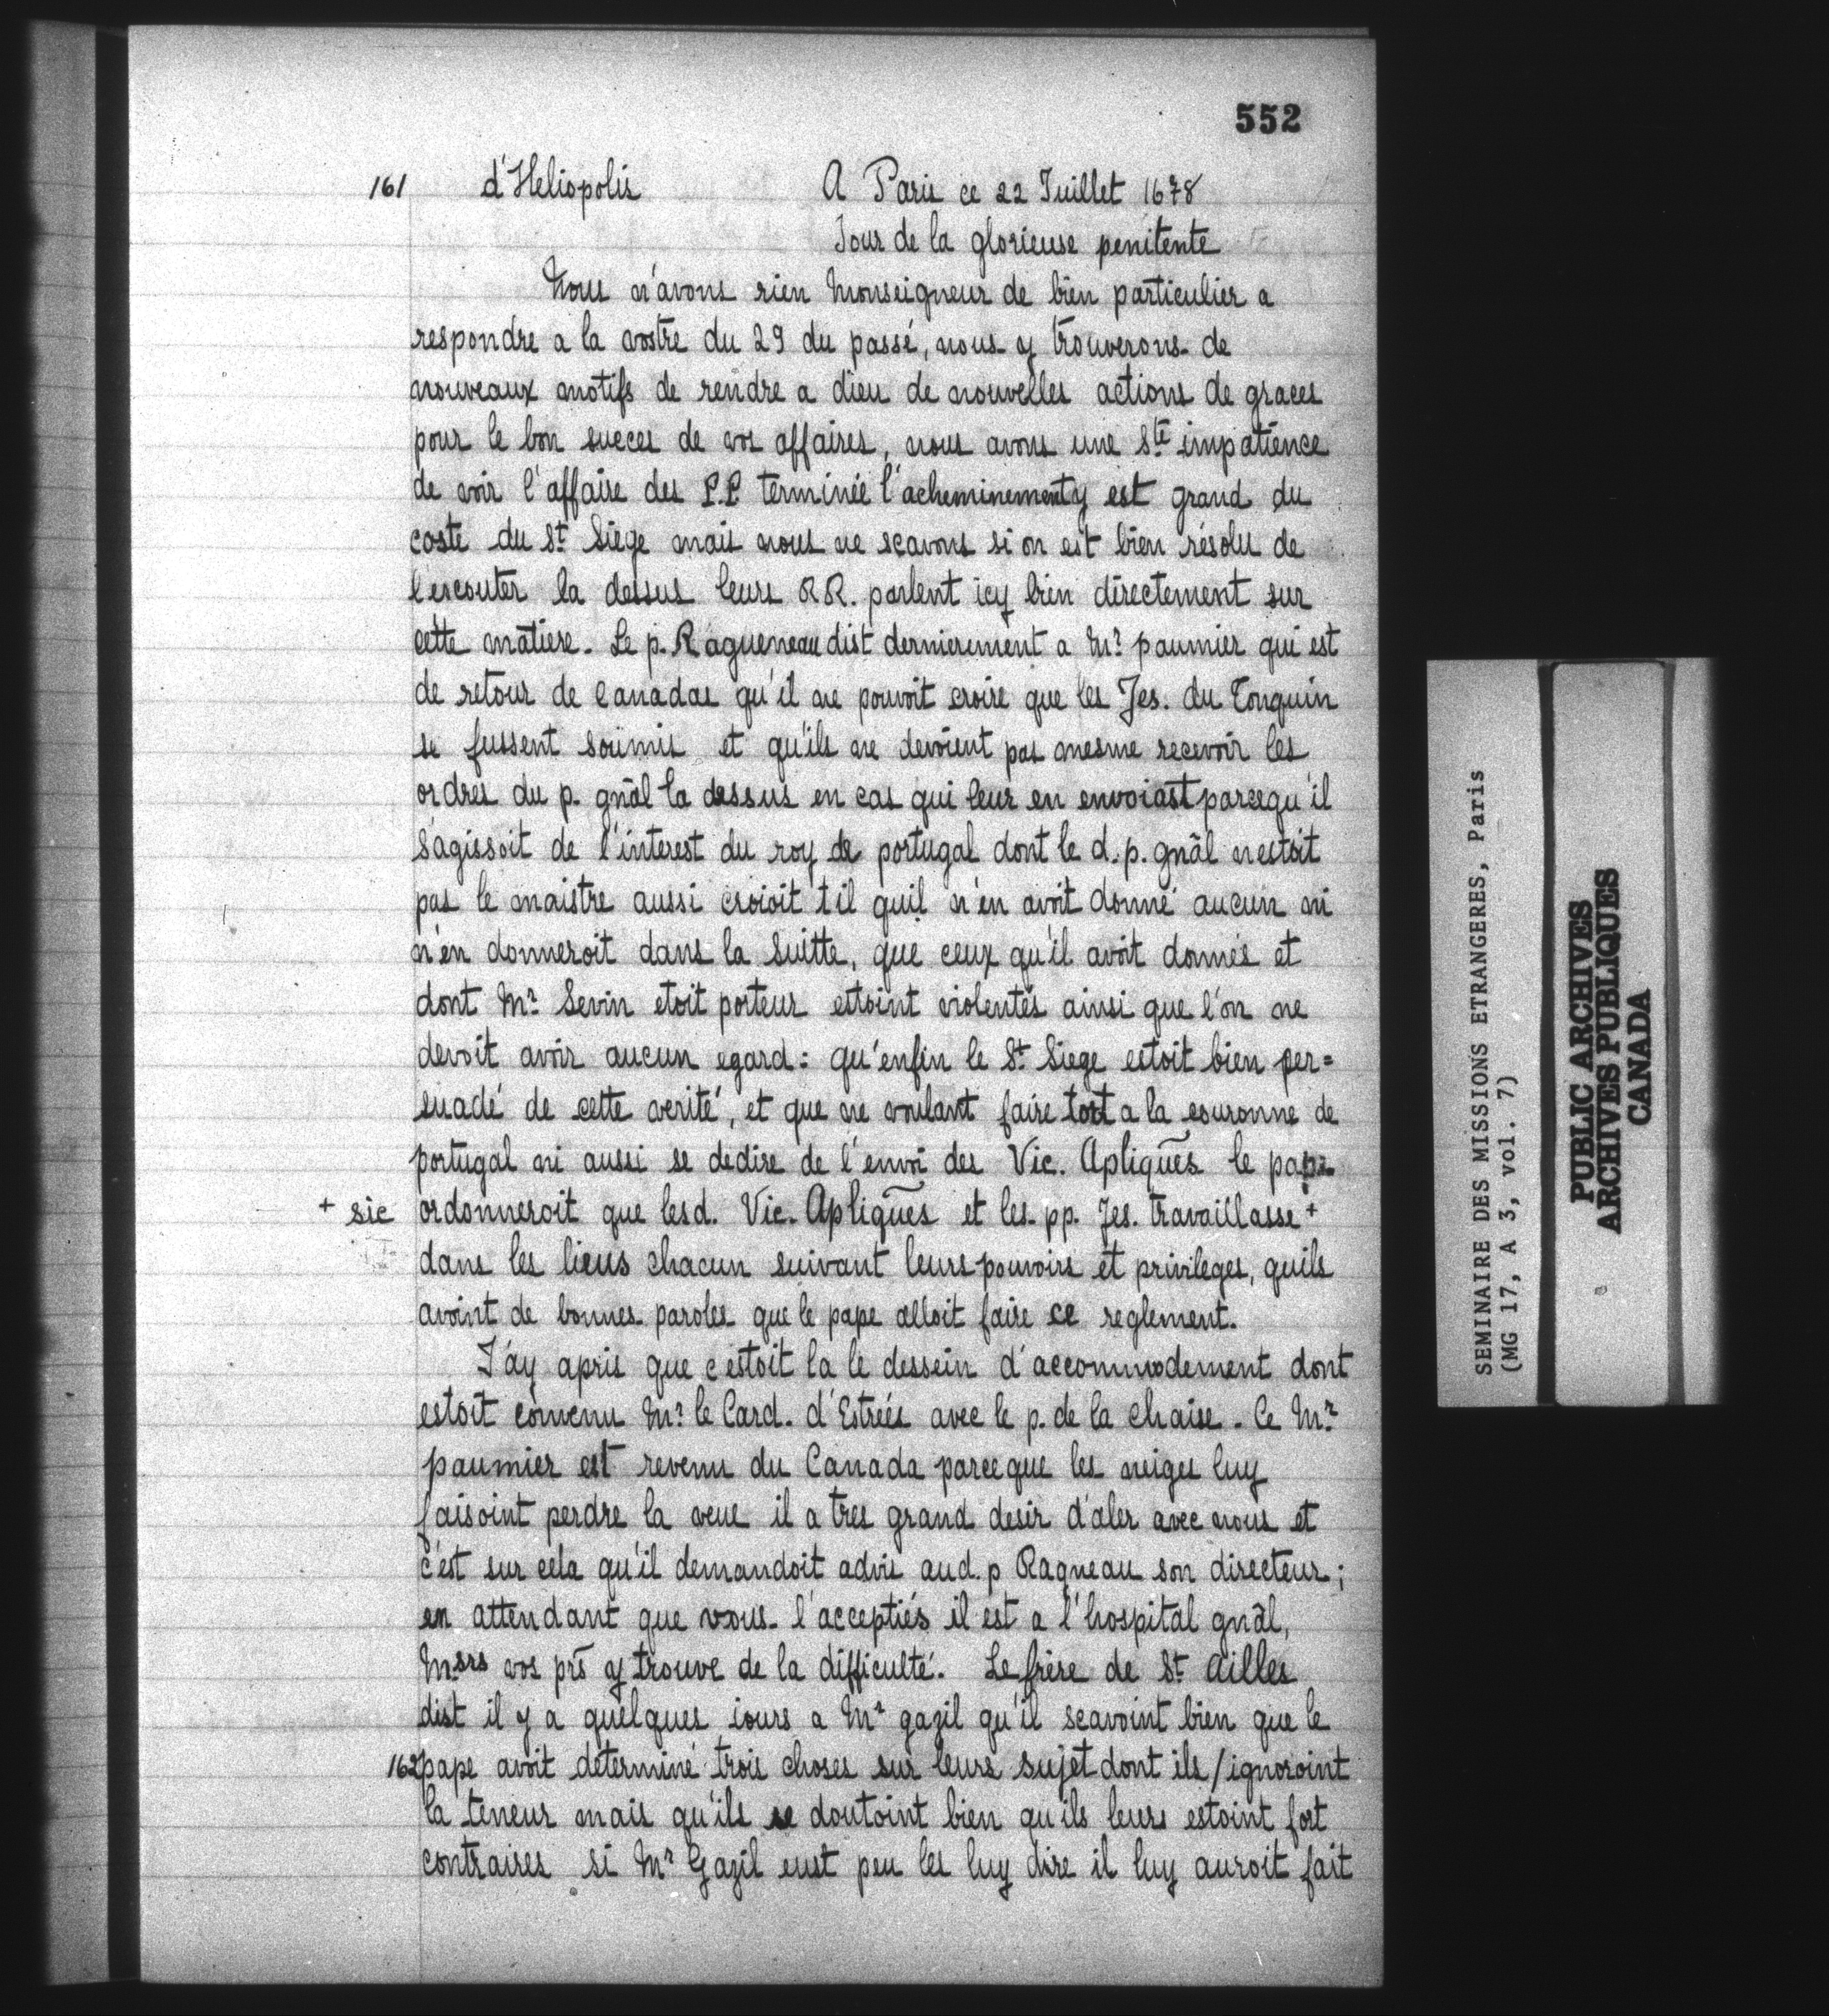 552
161 d'Heliopolis A Paris ce 22 Juillet 1678
Jour de la glorieuse penitente
Nous n'avons rien Monseigneur de bien particulier a
respondre a la vostre du 29 du passé, nous y trouverons de
nouveaux motifs de rendre a dieu de nouvelles actions de graces
pour le bon succes de vos affaires, nous avons une Ste impatience
de voir l'affaire des P.P. terminée l'acheminement y est grand du
costé du St Siege mais nous ne sçavons si on est bien résolu de
l'escouter la dessus leurs RR. parlent icy bien directement sur
cette matiere. Le p. Ragueneau dist dernierement a Mr paumier qui est
de retour de Canadas qu'il ne pouvoit croire que les Jes. du Tonquin
se fussent soumis et qu'ils ne devoient pas mesme recevoir les
ordres du p. gnâl la dessus en cas qui leur en envoiast parcequ'il
s'agissoit de l'interest du roy de portugal dont le d. p. gnâl nestoit
pas le maistre aussi croioit t'il quil n'en avoit donné aucun ni
n'en donneroit dans la suitte, que ceux qu'il avoit donnés et
dont Mr Sevin etoit porteur estoint violentés ainsi que l'on ne
devoit avoir aucun egard: qu'enfin le St Siege estoit bien per=
suadé de cette verité, et que ne voulant faire tort a la couronne de
portugal ni aussi se dedire de l'envoi des Vic. Apliques le pape
+ sic ordonneroit que lesd. Vic. Apliques et les pp. Jes. travaillasse +
dans les lieus chacun suivant leurs pouvoirs et privileges, quils
avoint de bonnes paroles que le pape alloit faire ce reglement.
J'ay apris que c'estoit la le dessein d'accommodement dont
estoit convenu Mr le Card. d'Estrées avec le p. de la Chaise. Ce Mr
paumier est revenu du Canada parceque les neiges luy
faisoint perdre la veue il a tres grand desir d'aler avec nous et
c'est sur cela qu'il demandoit advis aud. p Ragneau son directeur;
en attendant que vous l'acceptiés il est a l'hospital gnâl,
Msrs vos prs y trouve de la difficulté. Le frère de St Gilles
dist il y a quelques iours a Mr gazil qu'il scavoint bien que le
162 pape avoit determiné trois choses sur leurs sujet dont ils / ignoroint
la teneur mais qu'ils se doutoint bien qu'ils leurs estoint fort
contraires si Mr Gazil eust peu les luy dire il luy auroit fait
SEMINAIRE DES MISSIONS ETRANGERES, Paris
(MG 17, A 3, vol. 7)
PUBLIC ARCHIVES
ARCHIVES PUBLIQUES
CANADA